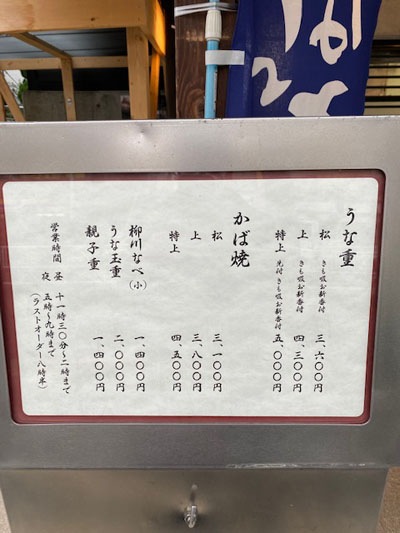 うな重
松 きも吸お新香付 三、六〇〇円
上 きも吸お新香付 四、三〇〇円
特上 先付 きも吸お新香付 五、〇〇〇円
かば焼
松 三、一〇〇円
上 三、八〇〇円
特上 四、五〇〇円
柳川なべ(小) 一、四〇〇円
うな玉重 二、〇〇〇円
親子重 一、四〇〇円
営業時間 昼 十一時三〇分〜二時まで
夜 五時〜九時まで
(ラストオーダー八時半)